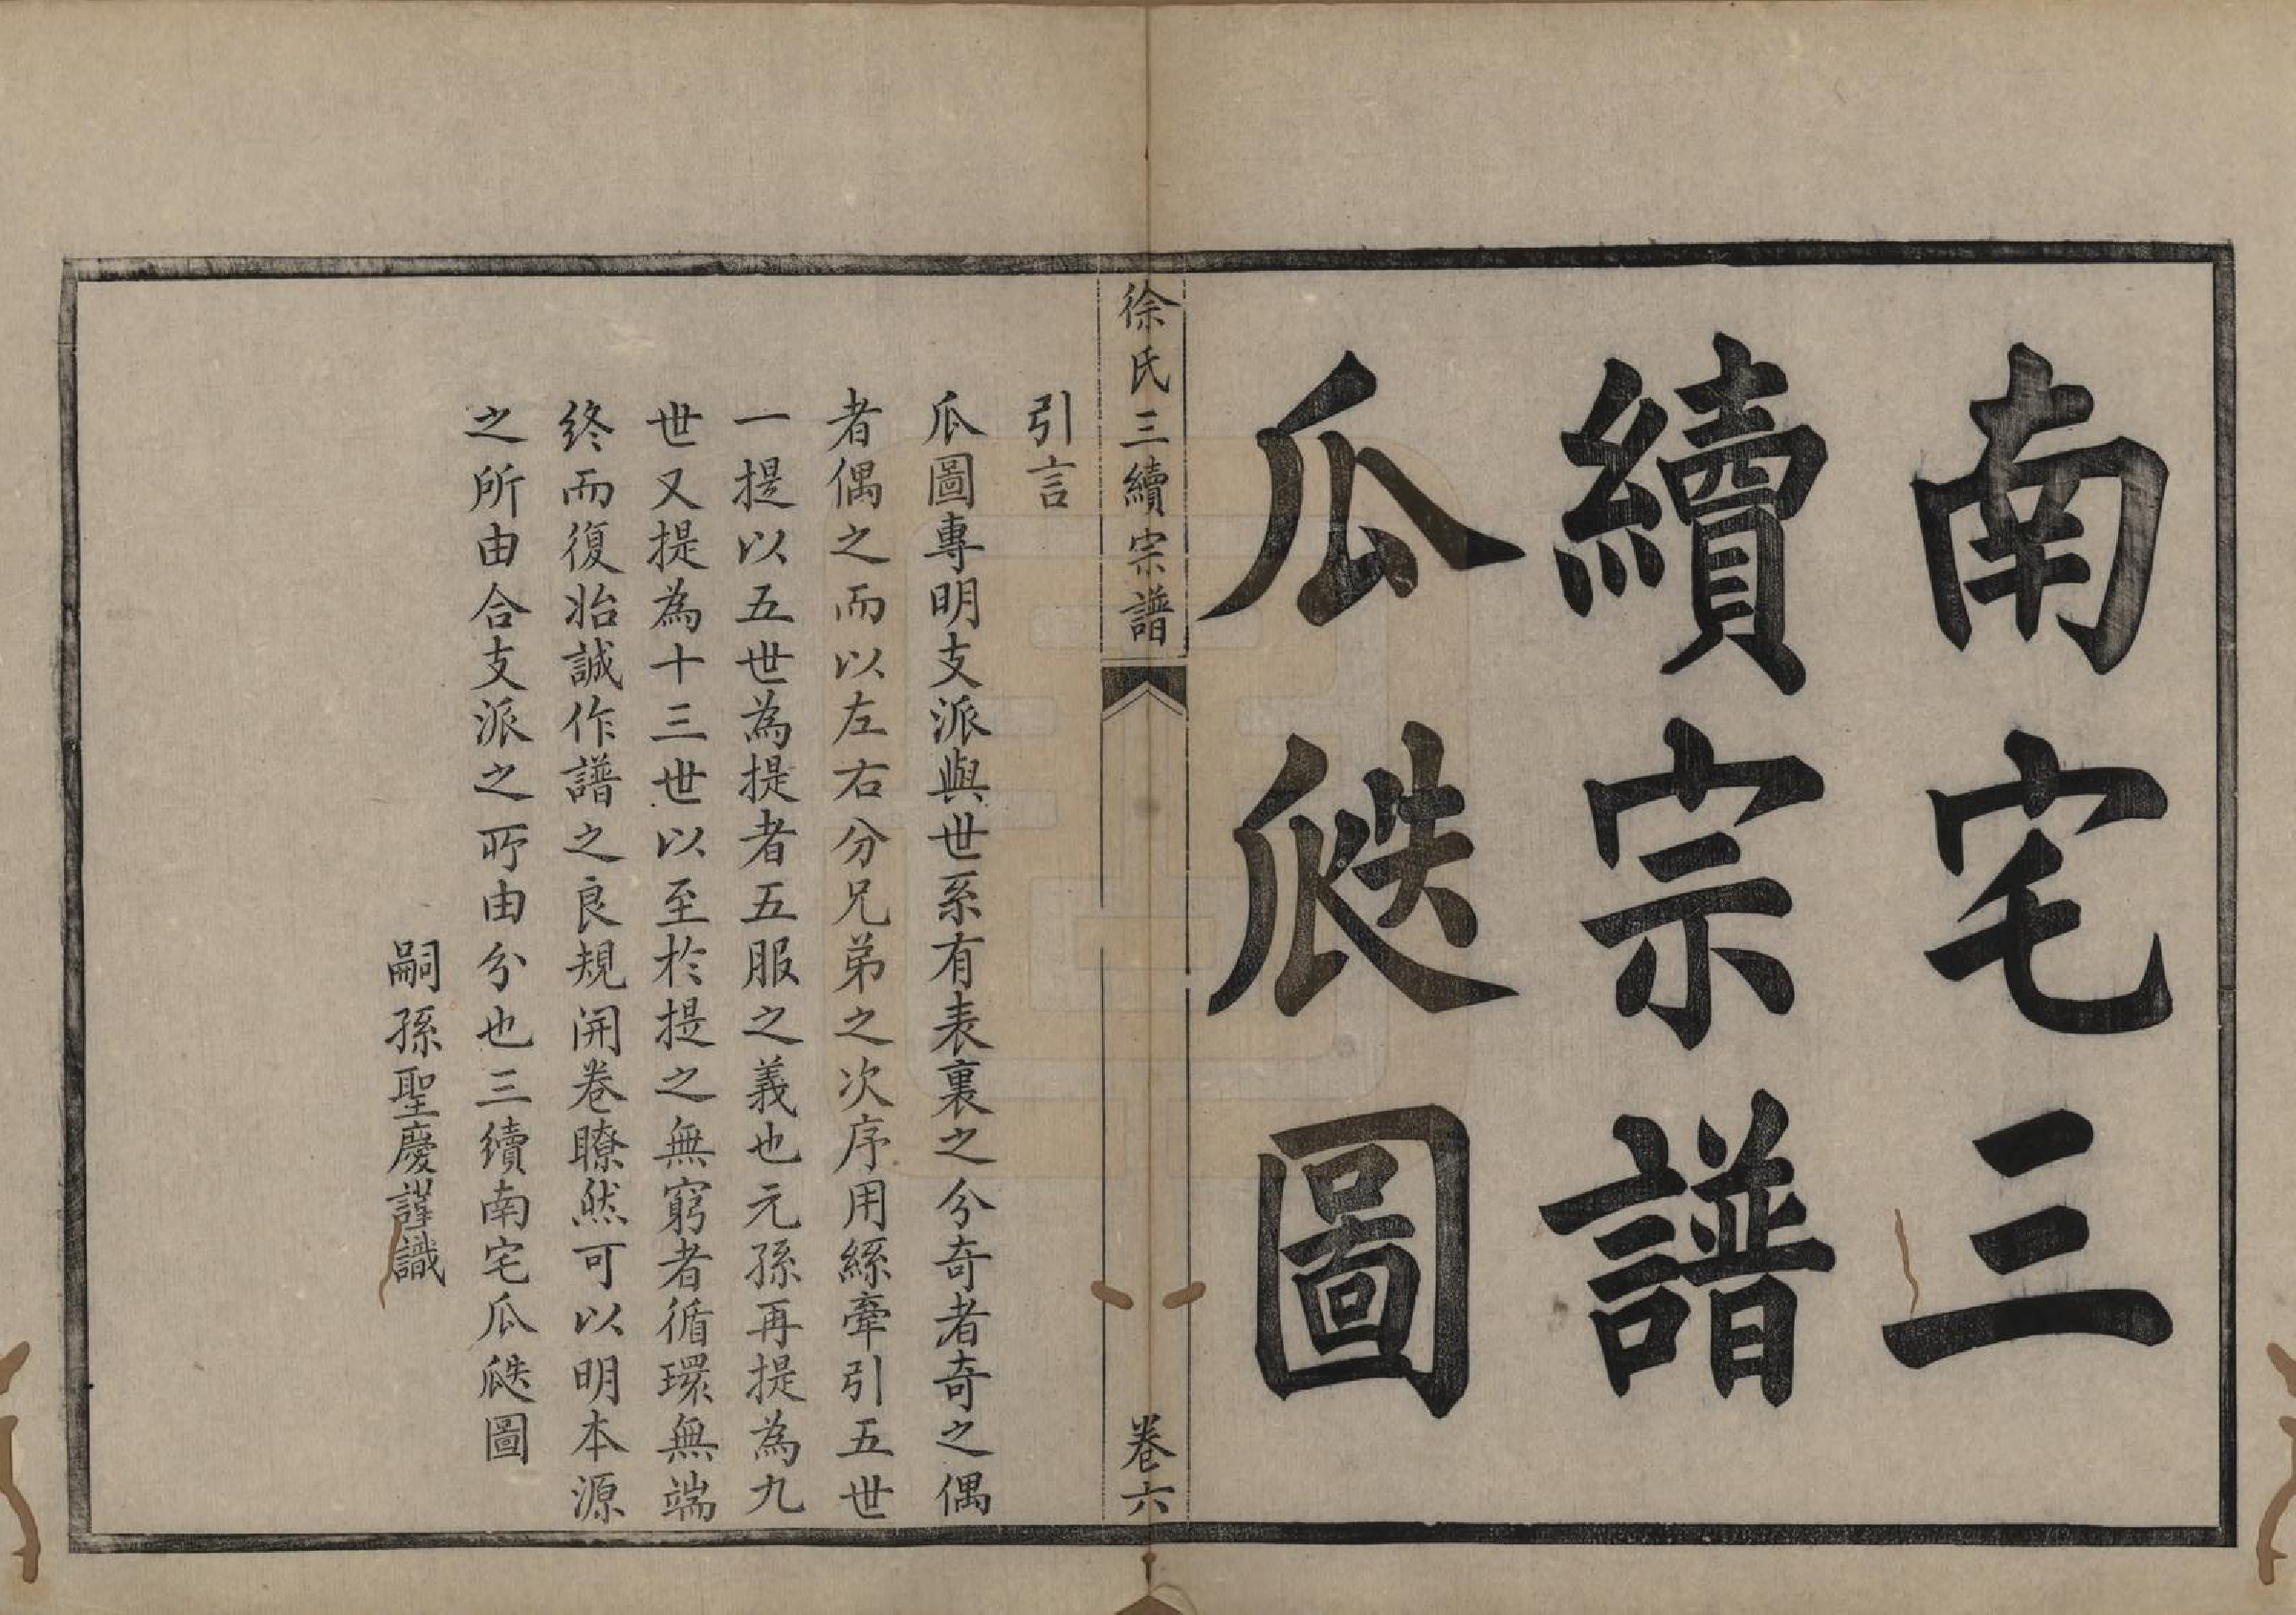 南宅三
續宗譜
瓜瓞圖
徐氏三續宗譜
卷六
引言
瓜圖專明支派與世系有表裏之分奇者奇之偶
者偶之而以左右分兄弟之次序用絲牽引五世
一提以五世為提者五服之義也元孫再提為九
世又提為十三世以至於提之無窮者循環無端
終而復始誠作譜之良規開卷瞭然可以明本源
之所由合支派之所由分也三續南宅瓜瓞圖
嗣孫聖慶謹識